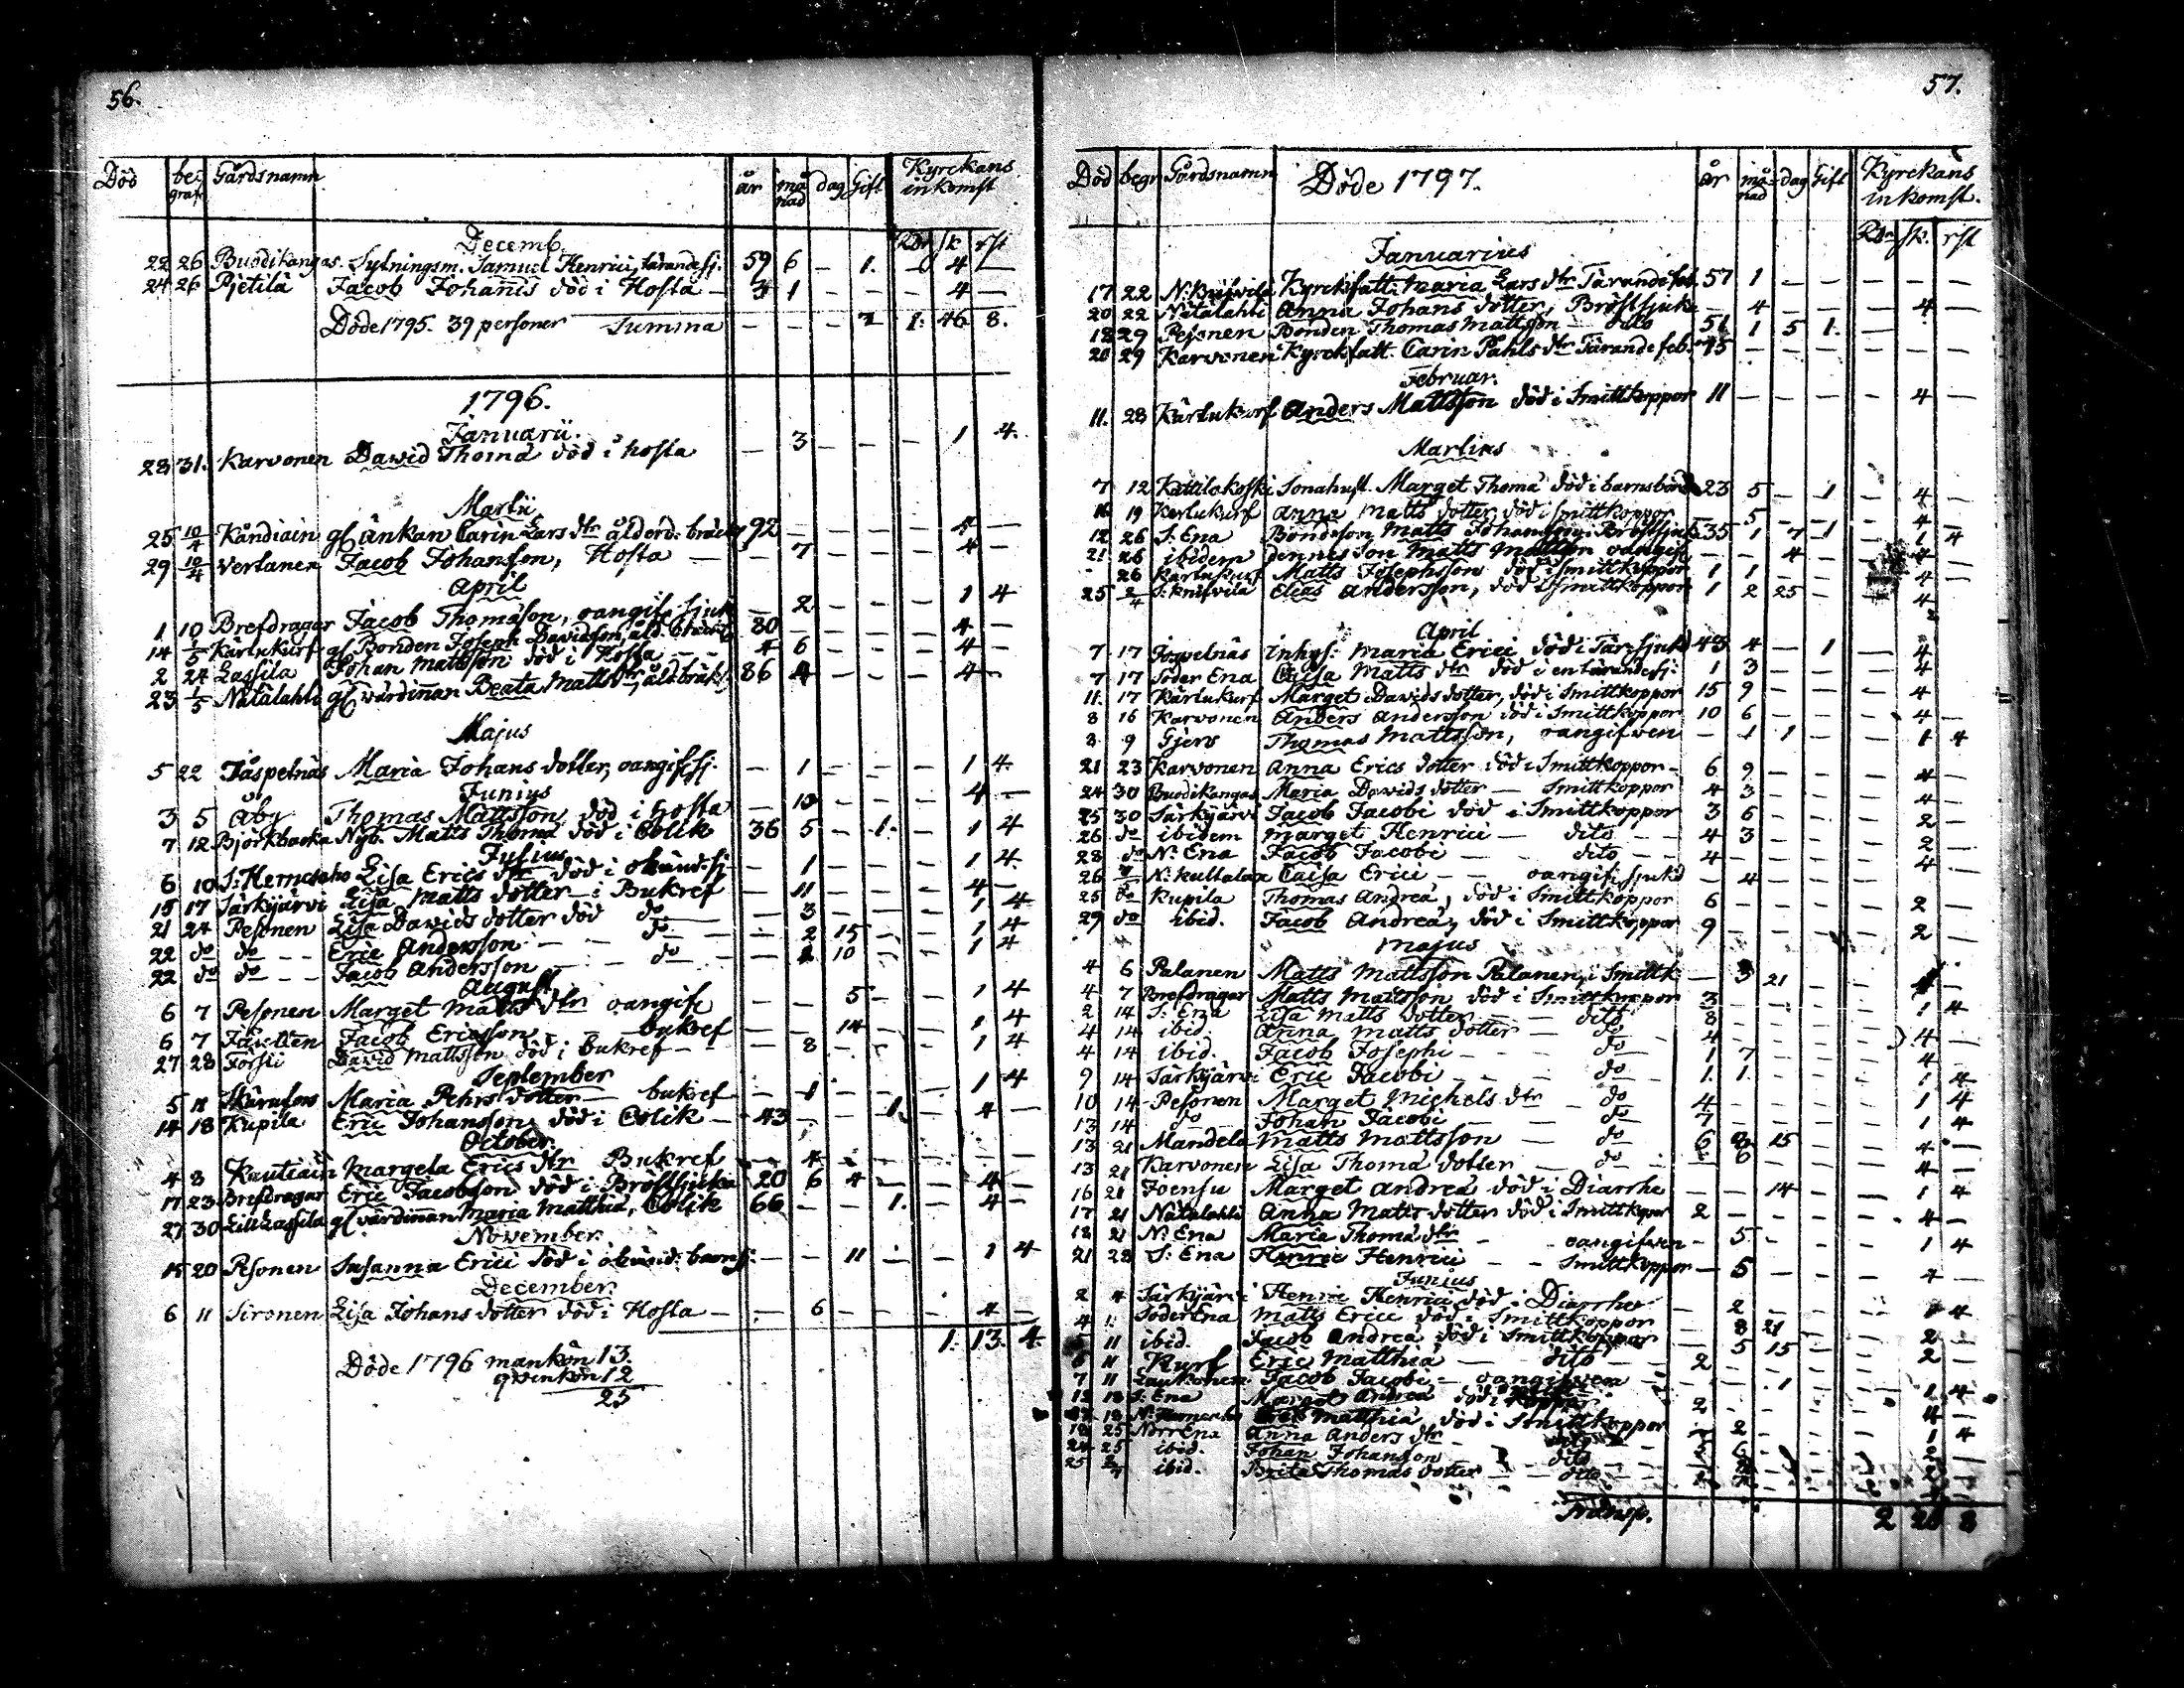 56.
Död be- graf. Gårdsnamn år må nad dag Gift Kyrckans inkomst
Decemb. Rdr sk rst
22 26 Buodikangas Sytningsm. Samuel Henrici, tärandesj. 59 6 — 1. — 4 —
24 26 Pjetilä Jacob Johannis död i Hosta — 3 1 — — — 4 —
Döde 1795. 39 personer Summa — — — 1: 46 8.
1796.
Januarii.
28 31. Karvonen David Thomæ död i hosta — 3 — — — 1 4.
Martii
25 10/4 Kandiain gl. änkan Carin Lars dtr ålderd. bräckl. 92 — — — — 4 —
29 10/4 Vertanen Jacob Johansson, Hosta — — 7 — — — 4 —
April
1 10 Brefdragar Jacob Thomasson, oangif. sjuk — 2 — — — 1 4
14 1/5 Kärlukurf gl. Bonden Joseph Davidsson, åld. bräckl. 80 — — — — 4 —
2 24 Lassila Johan Mattsson död i Hosta — 4 6 — — — 4 —
23 1/5 Natalahti gl. värdinnan Beata Matts dtr, åld. bräckl. 86 4 — — — 4 —
Majus
5 22 Jåspelnäs Maria Johans dotter, oangif. sj. — 1 — — — 1 4
Junius
3 5 Åby Thomas Mattsson, död i hosta — 10 — — — 4 —
7 12 Björkbacka Nyb. Matts Thomæ död i Colik 36 5 — 1. — 1 4
Julius
6 10 Lisa Erics dtr död i okänd. sj. — 1 — — — 1 4
15 17 Särkijärvi Lisa Matts dotter — i Bukref — 11 — — — 4 —
21 24 Pesonen Lisa Davids dotter död do — 3 — — — 1 4
22 do do — — Eric Andersson — — do — — 2 15 — — 1 4
22 do do — — Jacob Andersson — — do — — 2 10 — — 1 4
August.
6 7 Pesonen Marget Matts dtr oangif. — — 5 — — 1 4
6 7 Jacob Ericsson — — bukref — — 14 — — 1 4
27 28 Försti David Mattsson död i bukref — — 8 — — — 1 4
September
5 11 Maria Pehrs dotter — bukref — 1 — — — 1 4
14 18 Kupila Eric Johansson, död i Colik — 43 — — 1. — 4 —
October.
4 8 Kautiain Margeta Erics dtr Bukref — 4 — — — — —
17 23 Brefdragar Eric Jacobsson död i Bröstsjuka 20 6 4 — — 4 —
27 30 Lill Lassila gl. värdinnan Maria Matthiæ, Colik 66 — — 1. — 4 —
November.
15 20 Pesonen Susanna Erici död i okänd. barnsj. — — 11 — — 1 4
December.
6 11 Sironen Lisa Johans dotter död i Hosta — — 6 — — — 4 —
1: 13. 4.
Döde 1796 mankön 13.
qvinkön 12
25
57.
Död begr Gårdsnamn Döde 1797. år må- nad dag Gift Kyrckans inkomst.
Januarius Rdr sk. rst
17 22 Kyrckfatt. Maria Lars dtr Tärande feb. 57 1 — — — — —
20 22 Natalahti Anna Johans dotter, Bröstsjuka — 4 — — — 4 —
18 29 Pesonen Bonden Thomas Mattsson — dito 51 1 5 1. — — —
20 29 Karvonen Kyrckfatt. Carin Påhls dtr Tärande feb. 75 — — — — — —
Februar.
11. 28 Kärlukurf Anders Mattsson död i Smittkoppor 11 — — — — 4 —
Martius
7 12 Kattilakoski Sonahust. Marget Thomæ död i barnsbörd 23 5 — 1 — 4 —
16 19 Kerlukurf Anna Matts dotter död i smittkoppor — 5 — — — 4 —
12 26 S. Ena Bondeson Matts Johansson i Bröstsjuk. 35 1 7 1 — 1 4
21 26 ibidem dennes son Matts Mattson oangif. — — 4 — — 4 —
26 Kärlukurf Matts Josephsson död i smittkoppor 1 1 — — — 4 —
25 2/4 S: Knifvila Elias Andersson, död i Smittkoppor 1 2 25 — — 4
April
7 17 Jåspelnäs inhys: Maria Erici död i Tär. sjukd 43 4 — 1 — 4
7 17 Söder Ena Caisa Matts dtr död i en tärande sj: 1 3 — — — 4
11. 17 Kärlukurf Marget Davids dotter, död i Smittkoppor 15 9 — — — 4
8 16 Karvonen Anders Andersson död i Smittkoppor 10 6 — — — 4 —
8 9 Gjers Thomas Mattsson, oangifven — 1 1 — — 1 4
21 23 Karvonen Anna Erics dotter död i Smittkoppor — 6 9 — — — 4 —
24 30 Buodikangas Maria Davids dotter — Smittkoppor 4 3 — — — 4 —
25 30 Särkijärvi Jacob Jacobi död i Smittkoppor 3 6 — — — 2 —
26 do ibidem Marget Henrici — dito — — 4 3 — — — 2 —
28 do N: Ena Jacob Jacobi — — dito — — 4 — — — — 4 —
26 N: Kullalaa Caisa Erici — — oangif. sjukd — 4 — — —
25 do Kupila Thomas Andreæ, död i Smittkoppor 6 — — — — 2 —
29 do ibid. Jacob Andreæ, död i Smittkoppor 9 — — — — 2 —
Majus
4 6 Palanen Matts Mattsson Palanen, i Smittk. — 3 21 — —
4 7 Brefdragar Matts Mattsson död i Smittkoppor 3 — — — — 1 4
2 14 S. Ena Lisa Matts dotter — — dito 8 — — — —
4 14 ibid. Anna Matts dotter — do 4 — — — — 4 —
4 14 ibid. Jacob Josephi — — do 1 7 — — — 4
9 14 Särkijärvi Eric Jacobi — — do 1. 1. — — — 1 4
10 14 Pesonen Marget Michels dtr — do 4 — — — — 1 4
13 14 do Johan Jacobi — — do 7 — — — — 1 4
13 21 Mandela Matts Mattsson — do 6 2 15 — — 4 —
13 21 Karvonen Lisa Thomæ dotter — do — 6 — — — 4 —
16 21 Joensu Marget Andreæ död i Diarrhe — — 14 — — 1 4
17 21 Natalahti Anna Matts dotter död i Smittkopor 2 — — — — 4 —
18 21 N: Ena Maria Thomæ dtr — oangifven — 5 — — — 1 4
21 28 S: Ena Henric Henrici — — Smittkoppor — 5 — — — 4 —
Junius
2 4 Särkijärvi Henric Henrici, död i Diarrhe — 2 — — — 1 4
4 Söder Ena Matts Erici död i Smittkoppor — 8 21 — — 2 —
11 ibid. Jacob Andreæ död i Smittkoppor — 5 15 — — 2 —
11 Kurf Eric Matthiæ — dito — — 2 — — — —
7 11 Jacob Jacobi — oangifven — — — 1 — — 1 4
18 S. Ena Marget Andreæ död i 2 — — — — 4 —
18 Matthiæ död i Smittkoppor — 2 — — — 1 4
18 25 Norr Ena Anna Anders dtr —
24 25 ibid. Johan Johansson — dito —
25 2/7 ibid. Brita Thomas dotter — dito —
Transp. 2 20 8